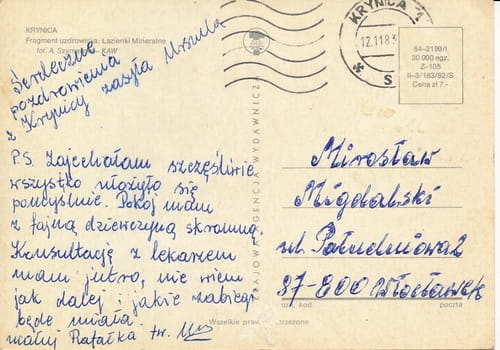 KRYNICA
Fragment uzdrowiska, Łazienki Mineralne
fot. A. - KAW
Serdeczne
pozdrowienia
z Krynicy zasyła Urszula
P.S. Zajechałam szczęśliwie
wszystko ułożyło się
pomyślnie. Pokój mam
z fajną dziewczyną skromną.
Konsultację z lekarzem
mam jutro, nie wiem
jak dalej i jakie zabiegi
będę miała.
Rafałka tw.
KRAJOWA AGENCJA WYDAWNICZA
KRYNICA 1
12.11.83
64-2199/I
30 000 egz.
Z-105
II-3/183/82/S
Cena zł 7.-
Mirosław
Migdalski
ul. Południowa 2
87-800 Włocławek
kod
poczta
Wszelkie prawa zastrzeżone